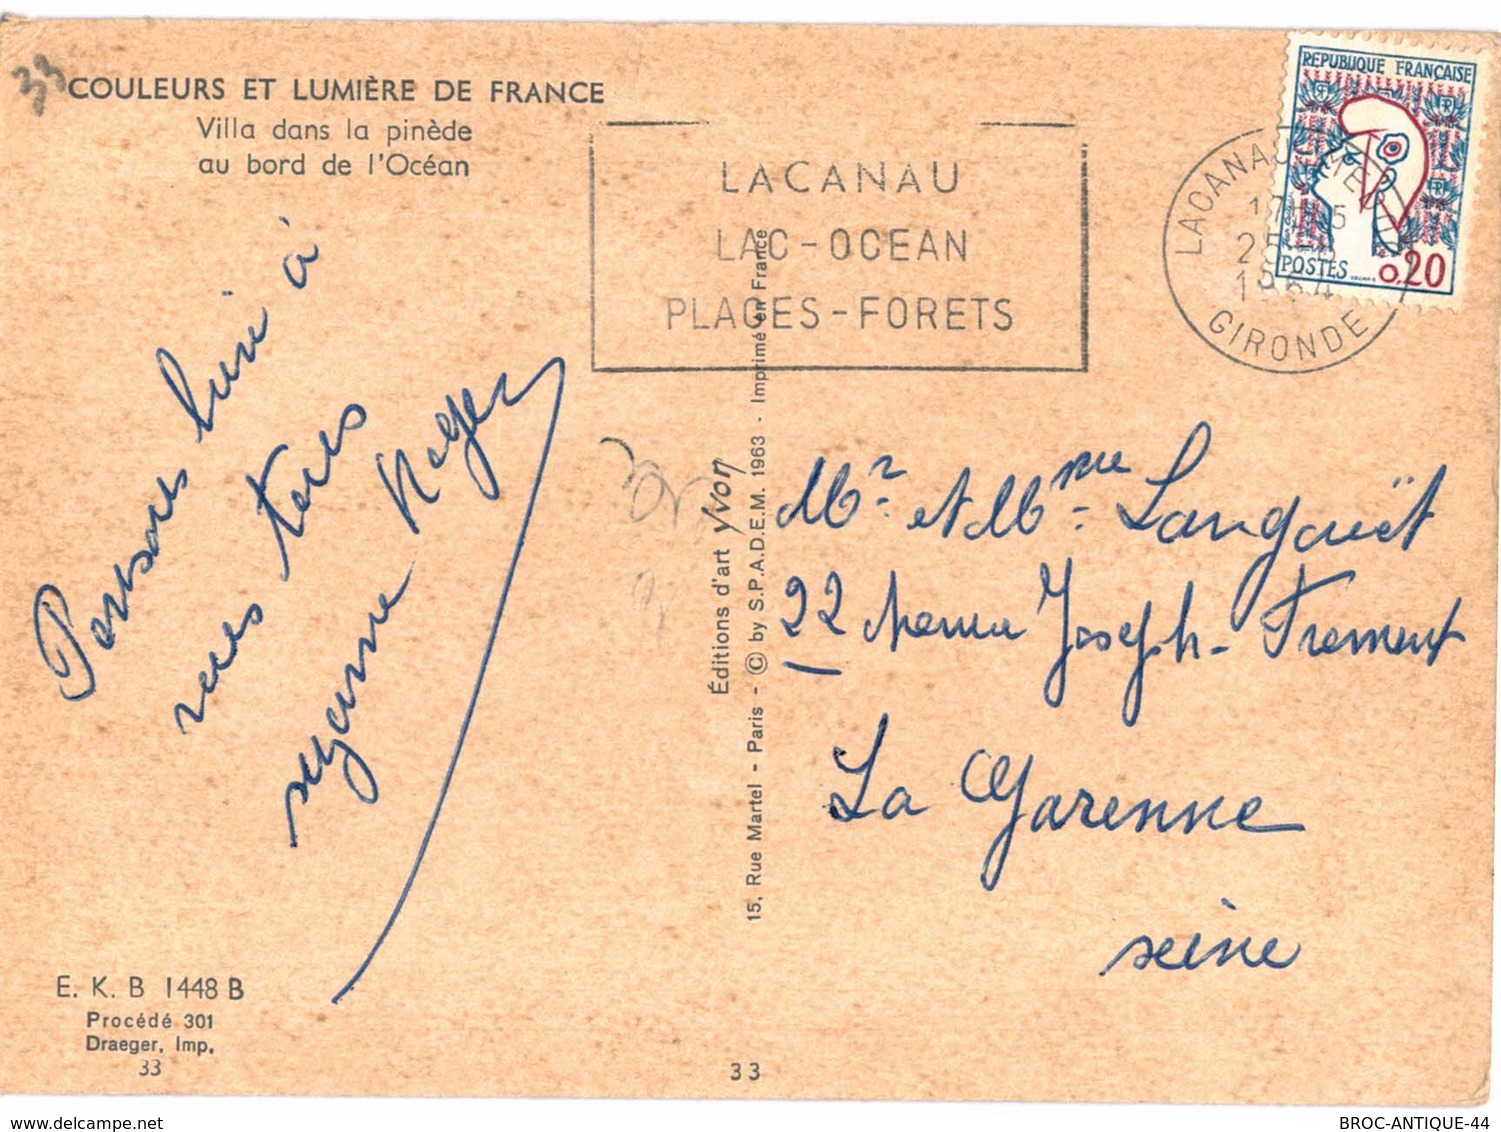 33
COULEURS ET LUMIÈRE DE FRANCE
Villa dans la pinède
au bord de l'Océan
LACANAU
LAC-OCEAN
PLAGES-FORETS
LACANAU-
GIRONDE
1964
REPUBLIQUE FRANÇAISE
POSTES
0,20
Pensons bien à
vous tous
suzanne Roger
Éditions d'art yvon
15, Rue Martel - Paris - © by S.P.A.D.E.M. 1963 - Imprimé en France
Mr et Mme Langouët
22 Avenue Joseph-Froment
La Garenne
seine
E. K. B 1448 B
Procédé 301
Draeger, Imp.
33
33
delcampe.net
BROC-ANTIQUE-44